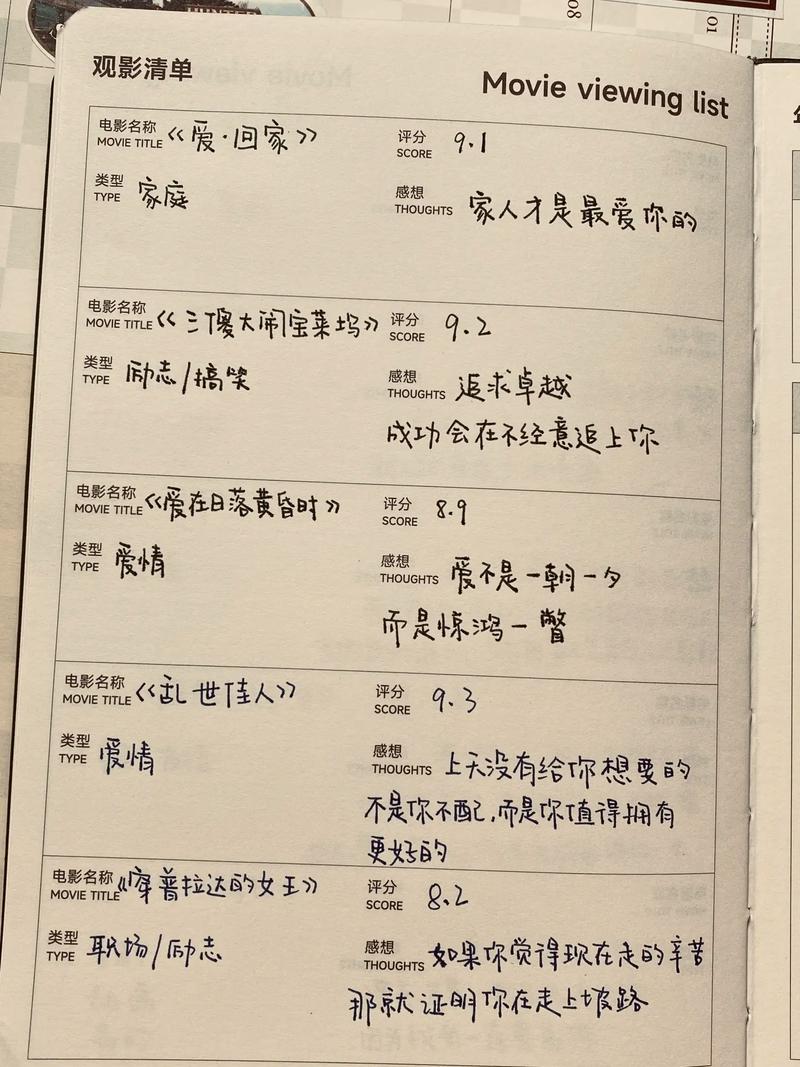 08
01
观影清单
Movie viewing list
电影名称
MOVIE TITLE
《爱·回家》
评分
SCORE
9.1
类型
TYPE
家庭
感想
THOUGHTS
家人才是最爱你的
电影名称
MOVIE TITLE
《三傻大闹宝莱坞》
评分
SCORE
9.2
类型
TYPE
励志/搞笑
感想
THOUGHTS
追求卓越
成功会在不经意追上你
电影名称
MOVIE TITLE
《爱在日落黄昏时》
评分
SCORE
8.9
类型
TYPE
爱情
感想
THOUGHTS
爱不是一朝一夕
而是惊鸿一瞥
电影名称
MOVIE TITLE
《乱世佳人》
评分
SCORE
9.3
类型
TYPE
爱情
感想
THOUGHTS
上天没有给你想要的
不是你不配,而是你值得拥有
更好的
电影名称
MOVIE TITLE
《穿普拉达的女王》
评分
SCORE
8.2
类型
TYPE
职场/励志
感想
THOUGHTS
如果你觉得现在走的辛苦
那就证明你在走上坡路